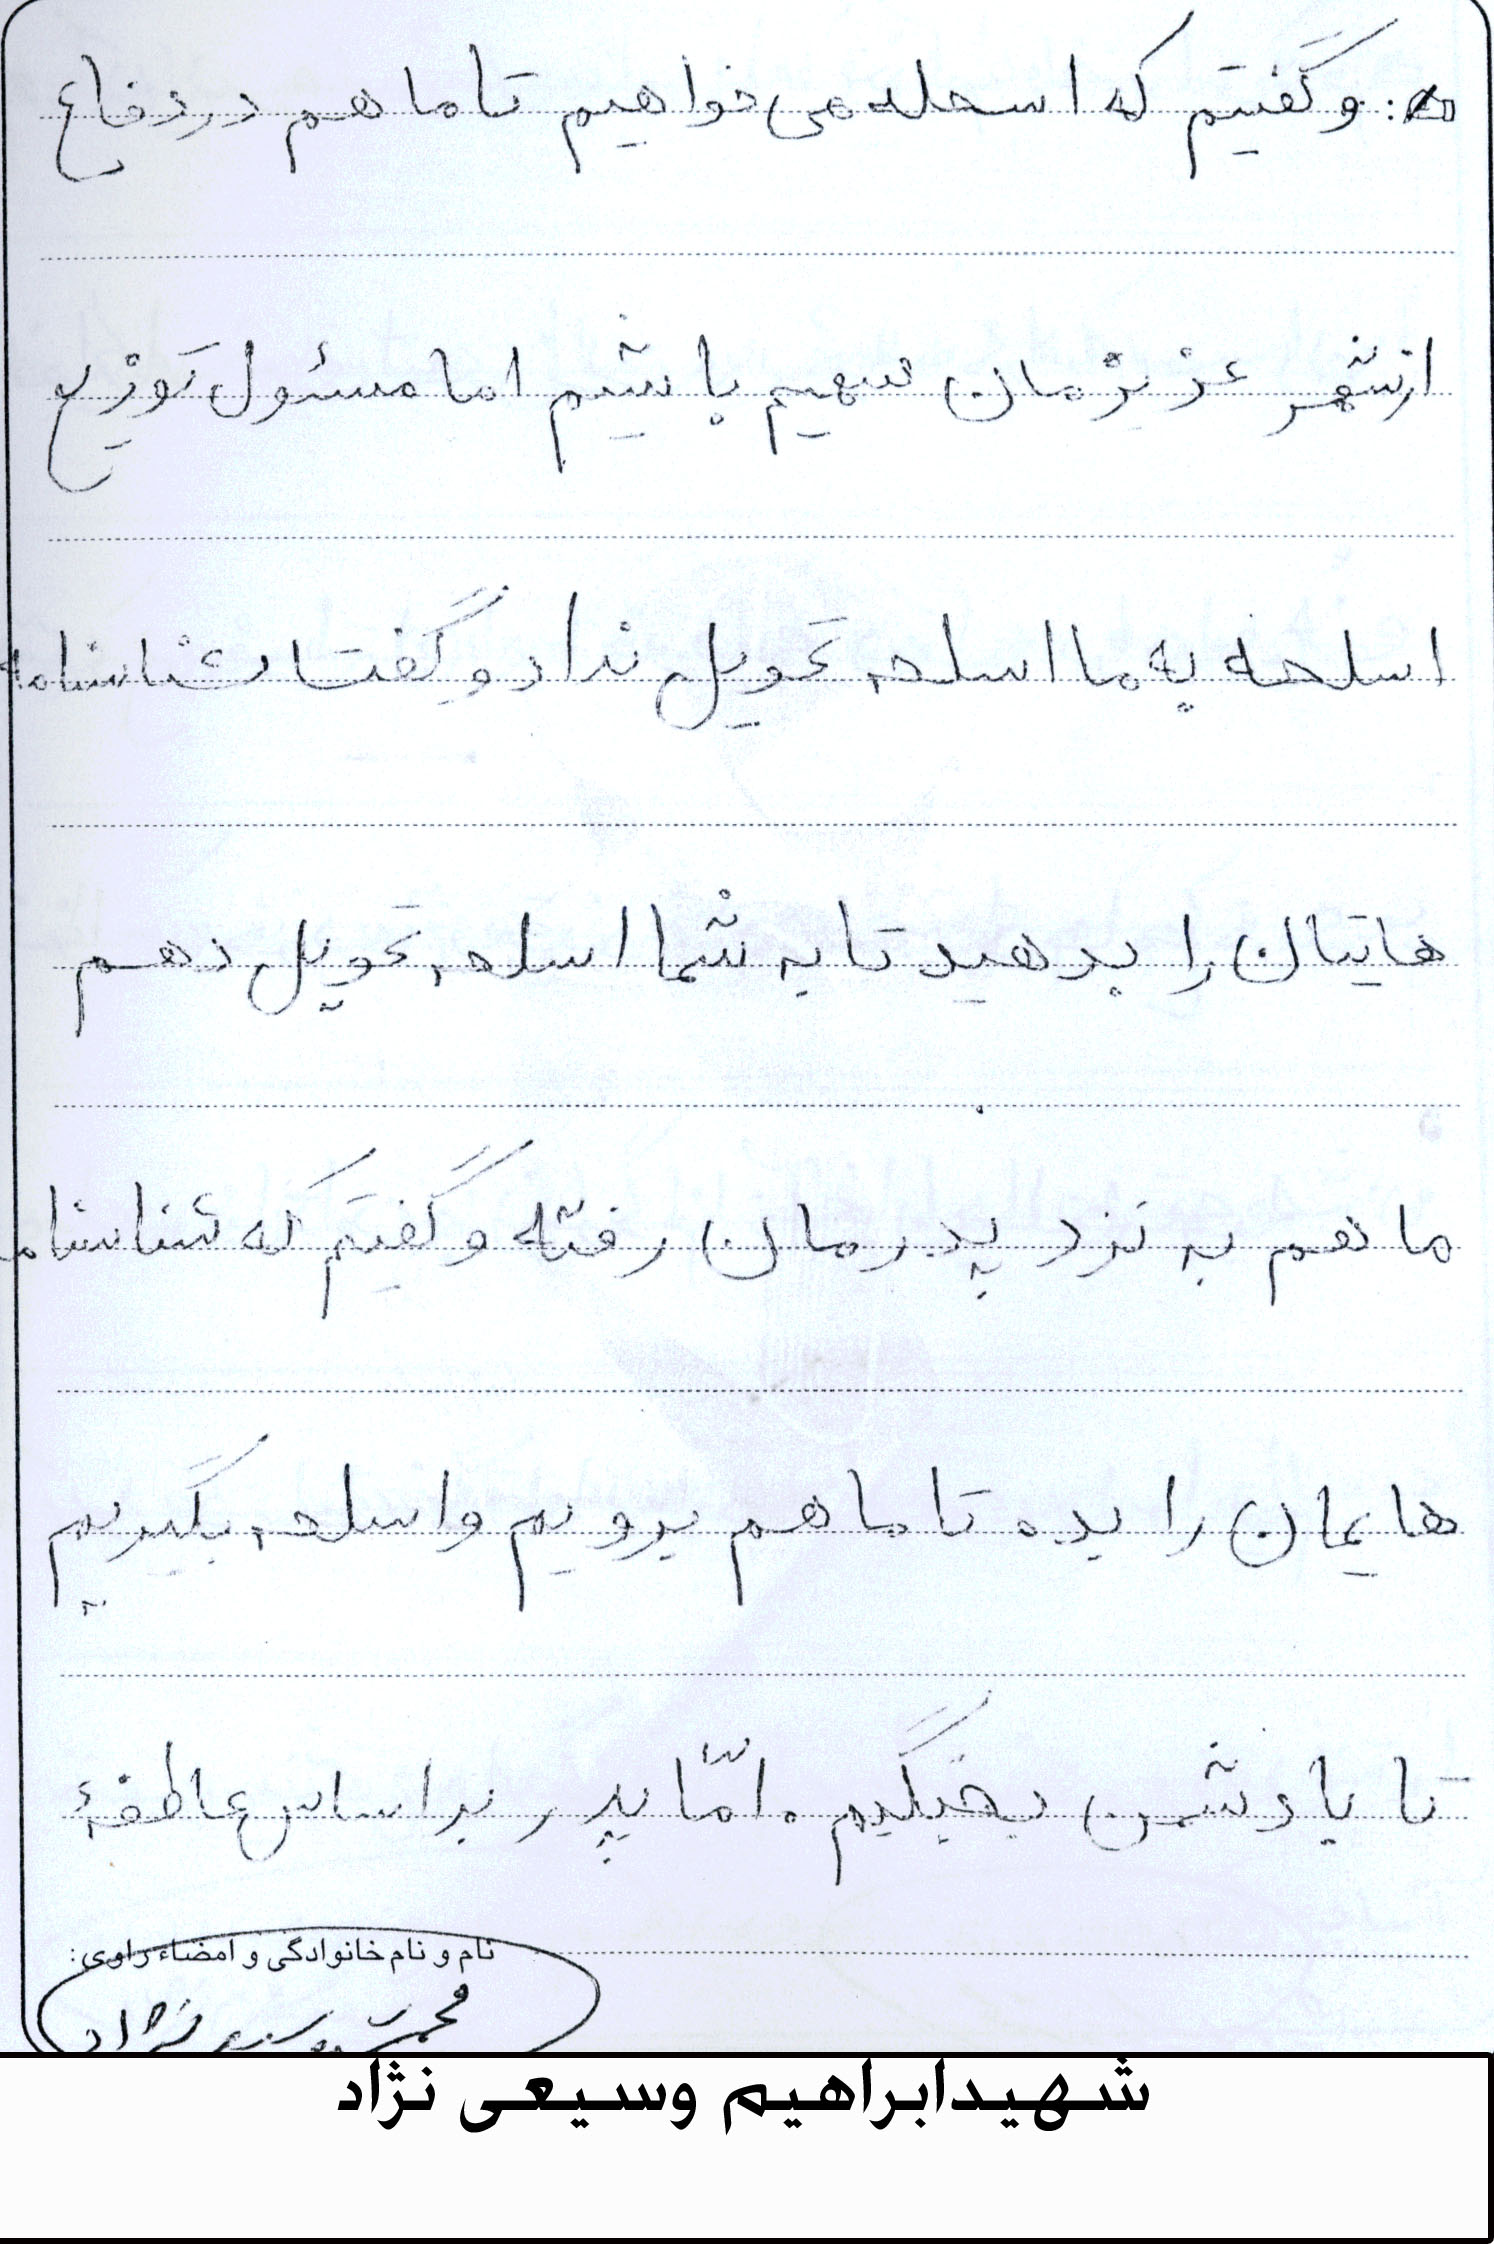 : و گفتیم که اسحله می‌خواهیم تا ما هم در دفاع
از شهر عزیزمان سهیم باشیم اما مسئول توزیع
اسلحه به ما اسلحه تحویل نداد و گفت شناسنامه
هایتان را بدهید تا به شما اسلحه تحویل دهم
ما هم به نزد پدرمان رفته و گفتیم که شناسنامه
هایمان را بده تا ما هم برویم و اسلحه بگیریم
تا با دشمن بجنگیم. امّا پدر بر اساس عاطفهٔ
نام و نام خانوادگی و امضاء راوی:
شهیدابراهیم وسیعی نژاد